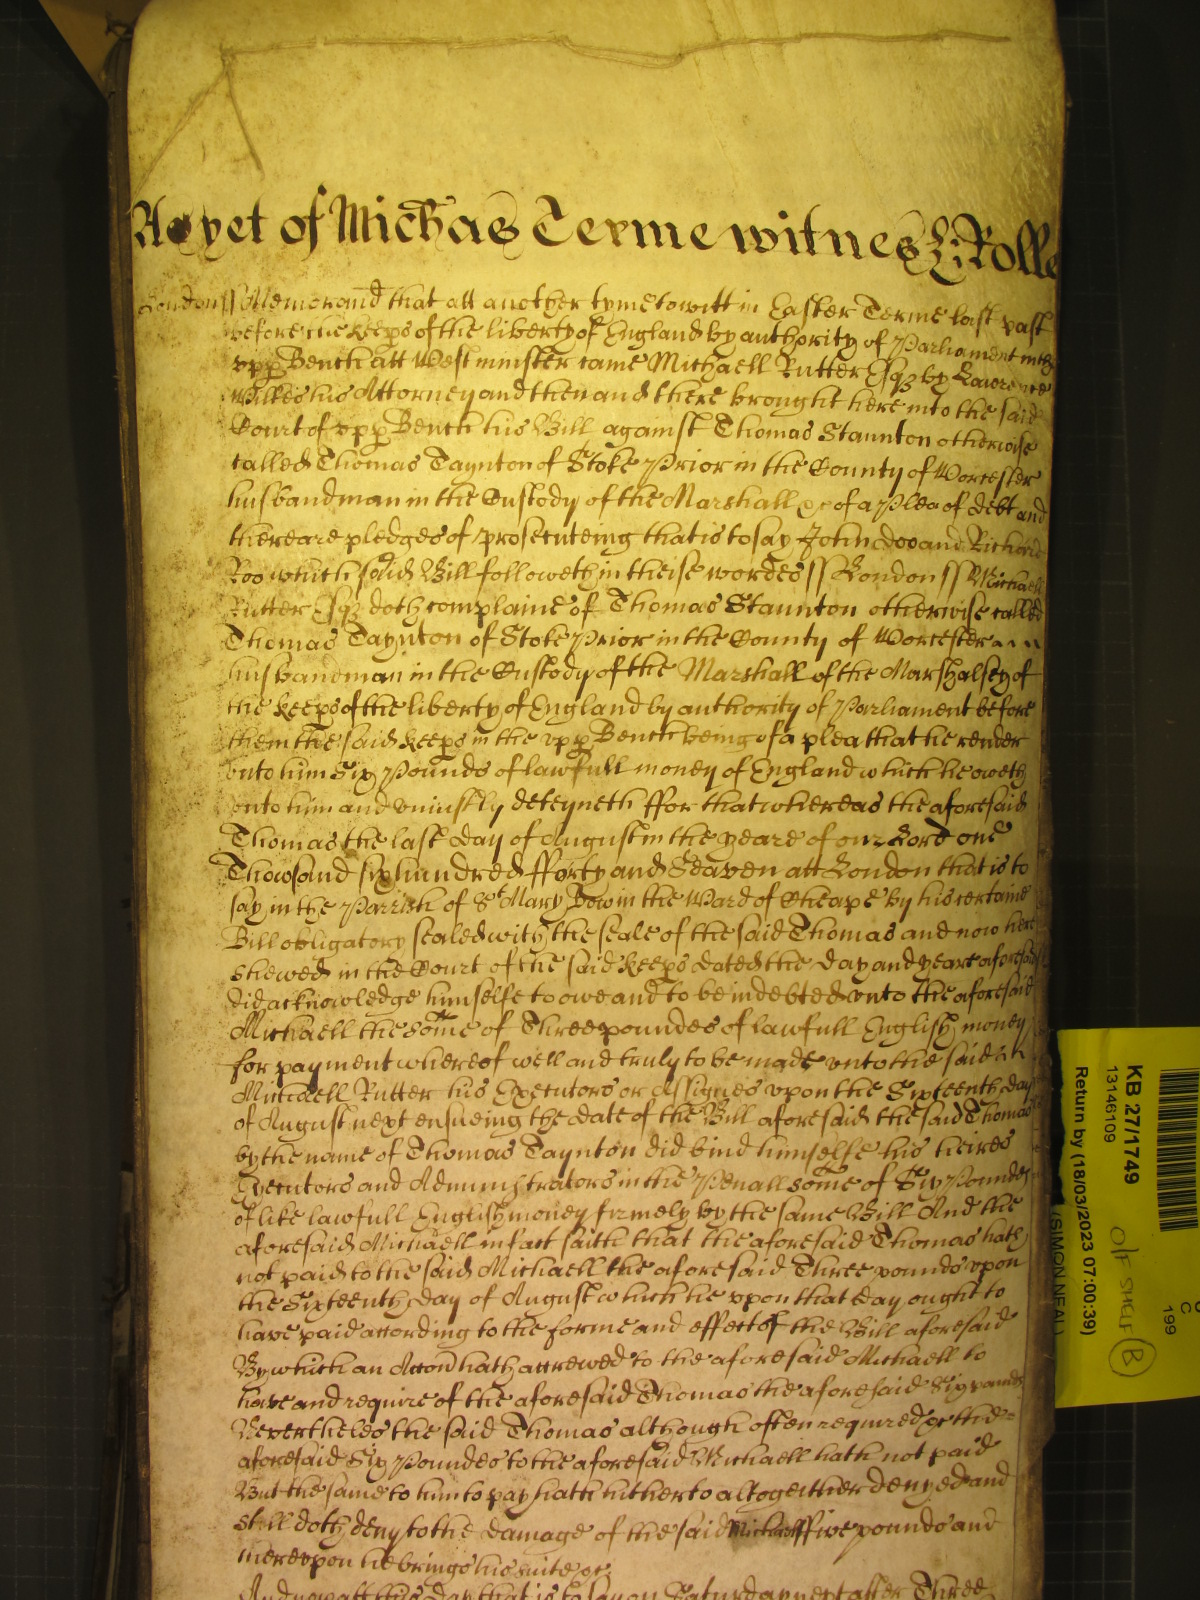 As yet of Michas Terme witnes H: Rolle
London ss Memorand that att another tyme to witt in Easter Terme last past
before the keeps of the liberty of England by authority of Parliament in the
upp Bench att Westminster came Michaell Rutter Esqz by Lawrence
Willes his Attorney and then and there brought here into the said
Court of upp Bench his Bill against Thomas Staunton otherwise
called Thomas Taynton of Stoke Prior in the County of Worcester
husbandman in the Custody of the Marshall &c of a Plea of debt and
there are pledges of prosecuteing that is to say John doo and Richard
Roo which said Bill followeth in theise wordes ss London ss Michaell
Rutter Esqz doth complaine of Thomas Staunton otherwise called
Thomas Taynton of Stoke Prior in the County of Worcester
husbandman in the Custody of the Marshall of the Marshalsey of
the keeps of the liberty of England by authority of Parliament before
them the said keeps in the upp Bench being of a plea that he render
unto him Six Pounds of lawfull money of England which he oweth
unto him and uniustly deteyneth ffor that whereas the aforesaid
Thomas the last day of August in the yeare of our Lord one
Thowsand six hundred fforty and Seaven att London that is to
say in the Parrish of St Mary Bow in the Ward of Cheape by his certaine
Bill obligatory sealed with the seale of the said Thomas and now here
shewed in the Court of the said keeps dated the day and yeare aforesaid
did acknowledge himselfe to owe and to be indebted unto the aforesaid
Michaell the some of Three poundes of lawfull English money
for payment whereof well and truly to be made unto the said
Michaell Rutter his Executors or Assignes upon the Sixteenth day
of August next ensueing the date of the Bill aforesaid the said Thomas
by the name of Thomas Taynton did bind himselfe his heires
Executors and Administrators in the Penall some of Six Poundes
of like lawfull English money firmely by the same Bill And the
aforesaid Michaell in fact saith that the aforesaid Thomas hath
not paid to the said Michaell the aforesaid Three pounds upon
the Sixteenth day of August which he upon that day ought to
have paid according to the forme and effect of the Bill aforesaid
By which an Accon hath accrewed to the aforesaid Michaell to
have and require of the aforesaid Thomas the aforesaid Six pounds
Nevertheles the said Thomas although often required &c the
aforesaid Six Poundes to the aforesaid Michaell hath not paid
But the same to him to pay hath hitherto altogeither denyed and
still doth deny to the damage of the said Michaell ffive pounds and
thereupon he brings his suite &c
And now att this Day that is to say on Saturday next after Three
KB 27/1749
13146109
Return by (18/03/2023 07:00:39)
(SIMON NEAL)
O/F SHELF
B
C
199